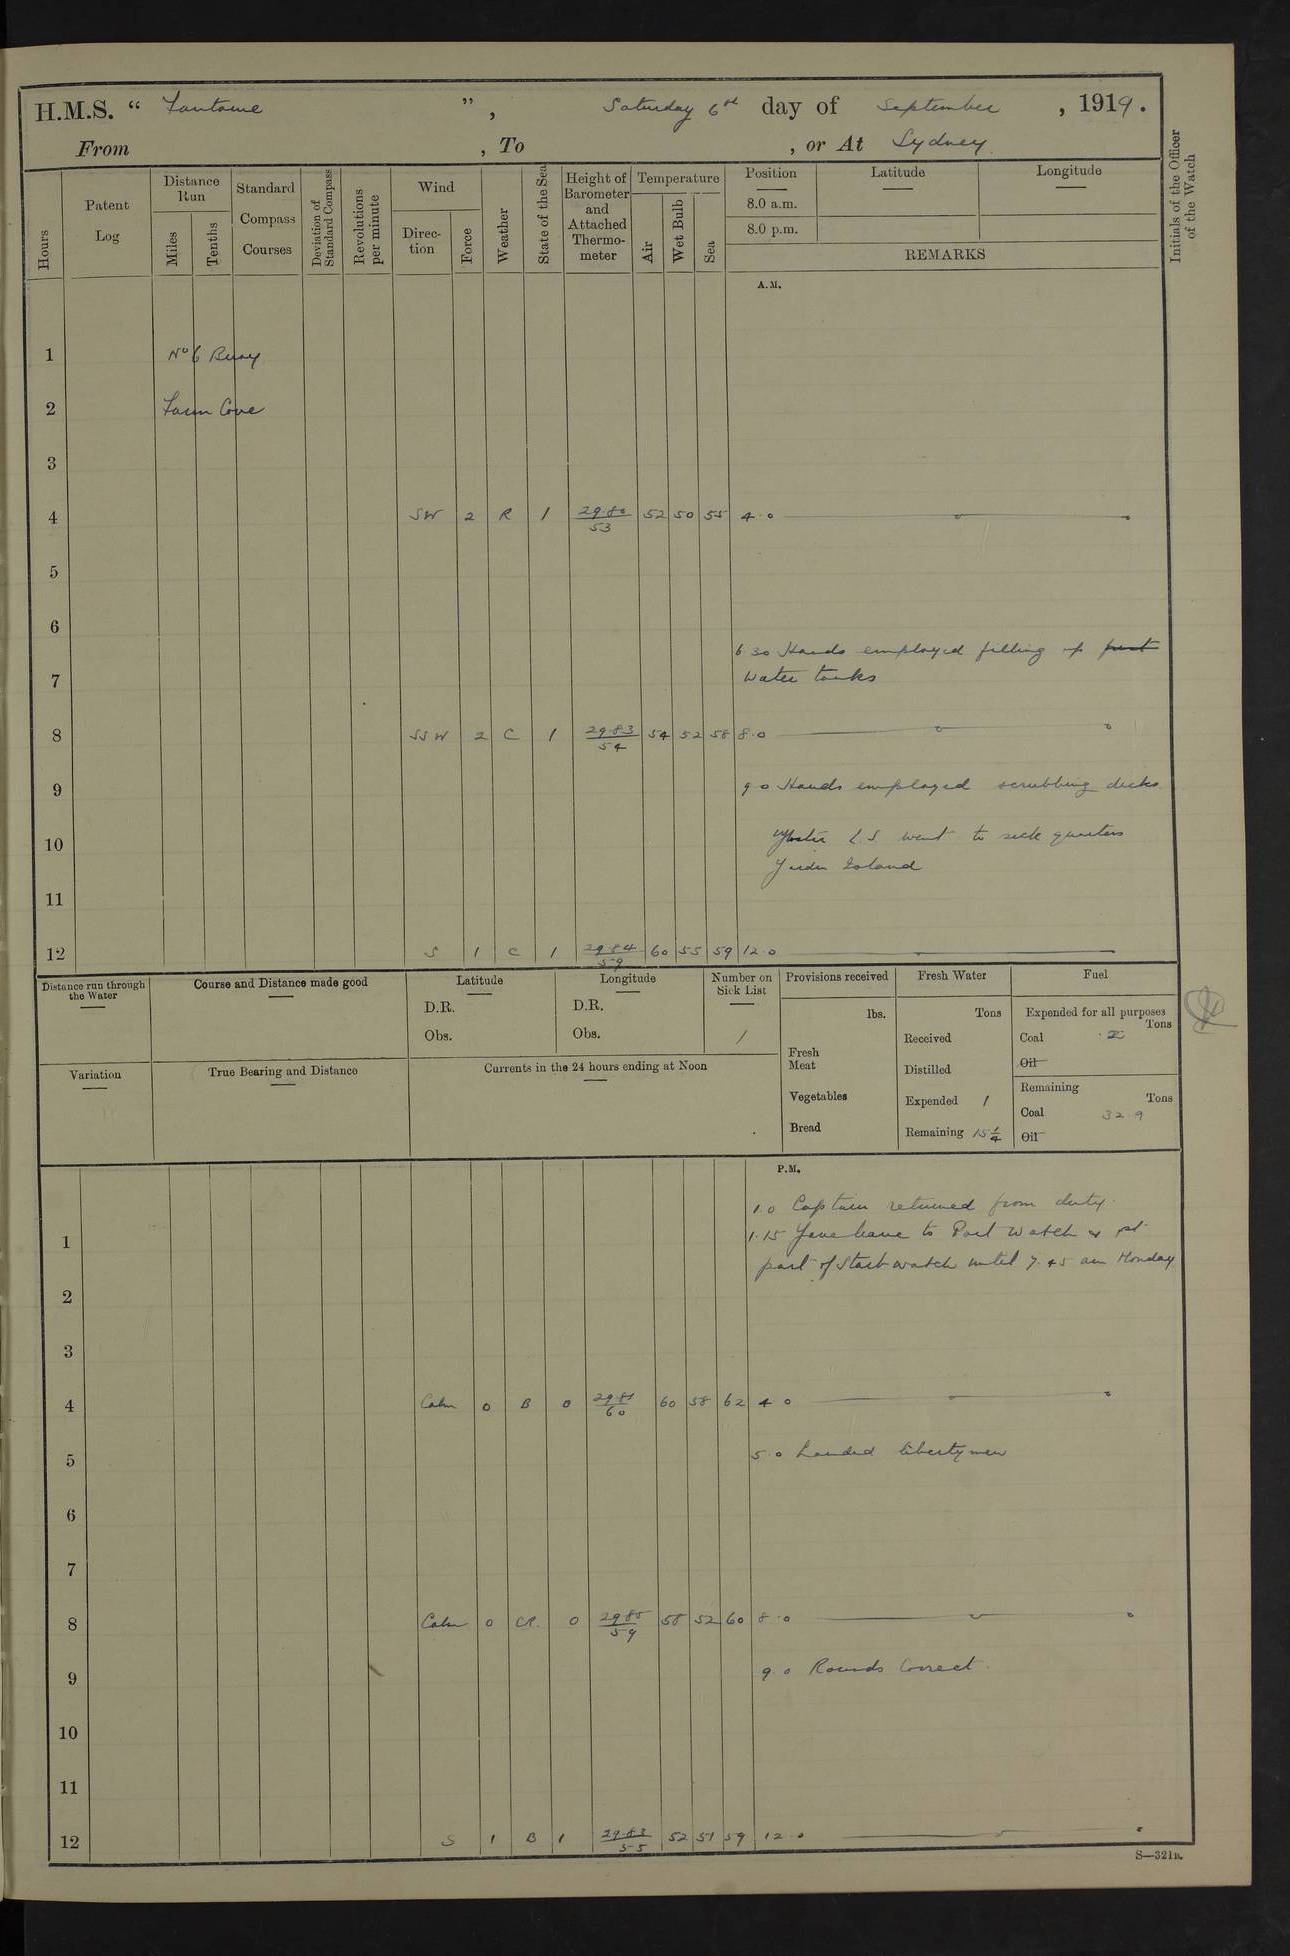 H.M.S. “ Fantome ”, Saturday 6th day of September, 1919.
From , To , or At Sydney
Initials of the Officer of the Watch
Hours
Patent Log
Distance Run
Miles
Tenths
Standard Compass Courses
Deviation of Standard Compass
Revolutions per minute
Wind
Direction
Force
Weather
State of the Sea
Height of Barometer and Attached Thermometer
Temperature
Air
Wet Bulb
Sea
Position
8.0 a.m.
8.0 p.m.
Latitude
Longitude
REMARKS
A.M.
1 No 6 Buoy
2 Farm Cove
3
4 SW 2 R 1 29.80 53 52 50 55 4.0
5
6
6 30 Hands employed filling up
7 water tanks
8 SSW 2 C 1 29.83 54 54 52 58 8.0
9 9 0 Hands employed scrubbing decks
10 L.S. went to sick quarters
Island
11
12 S 1 C 1 29.84 59 60 55 59 12.0
Distance run through the Water
Course and Distance made good
Latitude
D.R.
Obs.
Longitude
D.R.
Obs.
Number on Sick List
1
Variation
True Bearing and Distance
Currents in the 24 hours ending at Noon
Provisions received
lbs.
Fresh Meat
Vegetables
Bread
Fresh Water
Tons
Received
Distilled
Expended 1
Remaining 15 1/4
Fuel
Expended for all purposes
Tons
Coal
Oil
Remaining
Tons
Coal 32.9
Oil
P.M.
1.0 Captain returned from duty.
1 1.15 Gave leave to Port watch & pt
part of Starb watch until 7.45 am Monday
2
3
4 Calm 0 B 0 29.81 60 60 58 62 4 0
5 5.0 Landed liberty men
6
7
8 Calm 0 CR. 0 29.85 59 58 52 60 8.0
9 9.0 Rounds Correct.
10
11
12 S 1 B 1 29.83 55 52 51 59 12.0
S—321B.